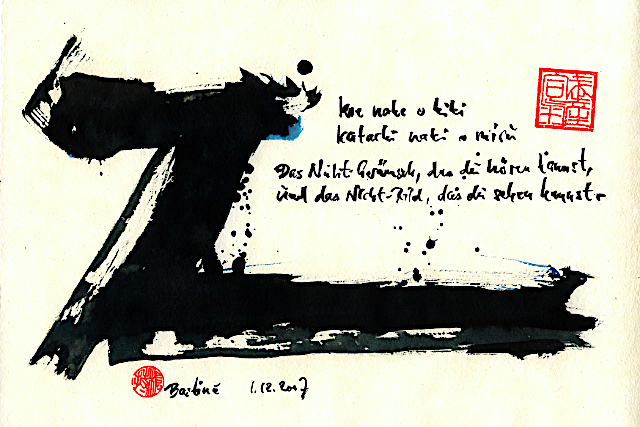 Z
koe nake o kiki
katachi naki o miru
Das Nicht-Geräusch, das du hören kannst,
und das Nicht-Bild, das du sehen kannst.
1.12.2017